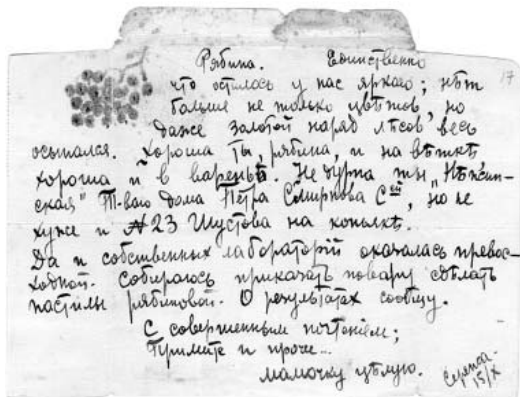 Рябина. Единственно
что осталось у нас яркаго; нѣт
больше не только цвѣтов, но
даже золотой наряд лѣсов весь
осыпался. Хороша ты, рябина, и на вѣткѣ
хороша и в вареньѣ. Не дурна ты „Нѣжин-
ская" Т-ваго дома Петра Смирнова Сей, но не
хуже и № 23 Шустова на коньякѣ.
Да и собственных лабораторій оказалась превос-
ходной. Собираюсь приказать повару сдѣлать
пастилы рябиновой. О результатах сообщу.
С совершенным почтеніем;
Примите и проче...
мамочку цѣлую.
Сережа
15/X
17